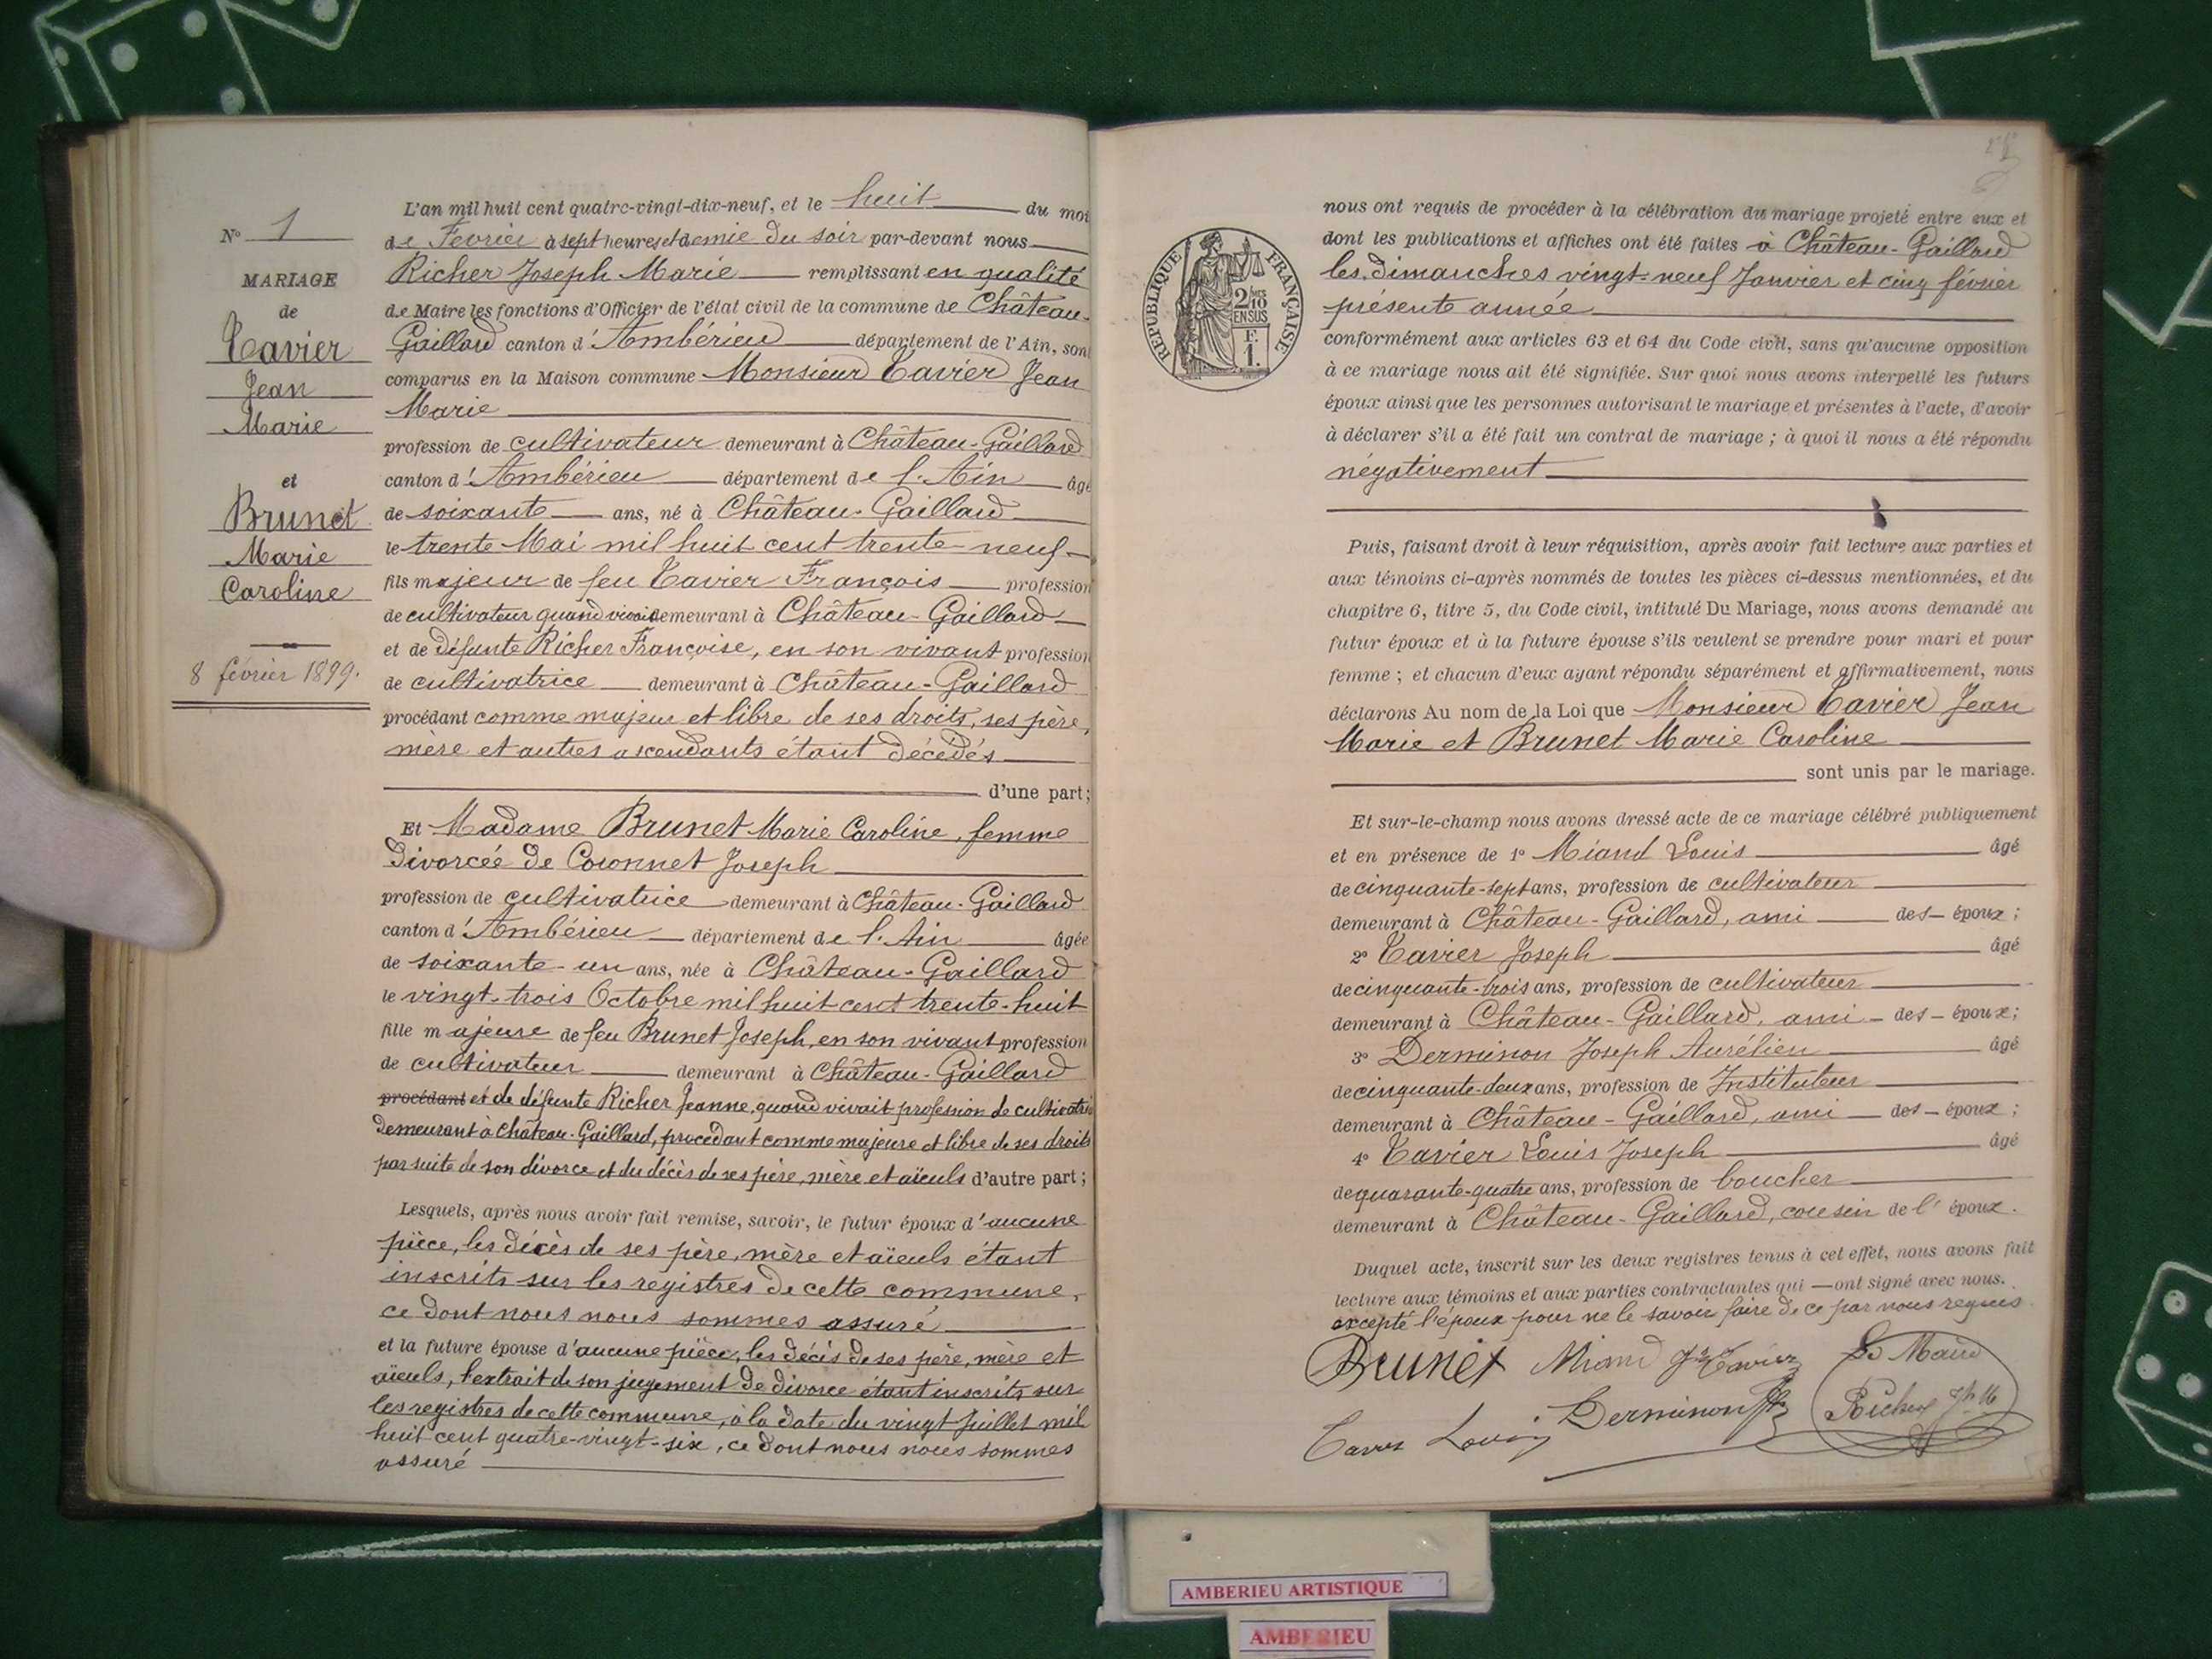 N° 1
MARIAGE
de
Tavier
Jean
Marie
et
Brunet
Marie
Caroline
8 février 1899.
L'an mil huit cent quatre-vingt-dix-neuf, et le huit du moi
de Février à sept heures et demie du soir par-devant nous
Richer Joseph Marie remplissant en qualité
de Maire les fonctions d'Officier de l'état civil de la commune de Château-
Gaillard canton d'Ambérieu département de l'Ain, sont
comparus en la Maison commune Monsieur Tavier Jean
Marie
profession de cultivateur demeurant à Château-Gaillard
canton d'Ambérieu département de l'Ain âgé
de soixante ans, né à Château-Gaillard
le trente Mai mil huit cent trente-neuf
fils majeur de feu Tavier François profession
de cultivateur quand vivait demeurant à Château-Gaillard
et de défunte Richer Françoise, en son vivant profession
de cultivatrice demeurant à Château-Gaillard
procédant comme majeur et libre de ses droits, ses père,
mère et autres ascendants étant décédés
d'une part;
Et Madame Brunet Marie Caroline, femme
divorcée de Coronnet Joseph
profession de cultivatrice demeurant à Château-Gaillard
canton d'Ambérieu département de l'Ain âgée
de soixante-un ans, née à Château-Gaillard
le vingt-trois Octobre mil huit cent trente-huit
fille majeure de feu Brunet Joseph, en son vivant profession
de cultivateur demeurant à Château-Gaillard
procédant et de défunte Richer Jeanne, quand vivait profession de cultivatrice
demeurant à Château-Gaillard, procédant comme majeure et libre de ses droits
par suite de son divorce et du décès de ses père, mère et aïeuls d'autre part;
Lesquels, après nous avoir fait remise, savoir, le futur époux d'aucune
pièce, les décès de ses père, mère et aïeuls étant
inscrits sur les registres de cette commune,
ce dont nous nous sommes assuré
et la future épouse d'aucune pièce, les décès de ses père, mère et
aïeuls, l'extrait de son jugement de divorce étant inscrits sur
les registres de cette commune, à la date du vingt Juillet mil
huit cent quatre-vingt-six, ce dont nous nous sommes
assuré
RÉPUBLIQUE FRANÇAISE
2/10 EN SUS
F. 1.
nous ont requis de procéder à la célébration du mariage projeté entre eux et
dont les publications et affiches ont été faites à Château-Gaillard
les dimanches vingt-neuf Janvier et cinq février
présente année
conformément aux articles 63 et 64 du Code civil, sans qu'aucune opposition
à ce mariage nous ait été signifiée. Sur quoi nous avons interpellé les futurs
époux ainsi que les personnes autorisant le mariage et présentes à l'acte, d'avoir
à déclarer s'il a été fait un contrat de mariage; à quoi il nous a été répondu
négativement
Puis, faisant droit à leur réquisition, après avoir fait lecture aux parties et
aux témoins ci-après nommés de toutes les pièces ci-dessus mentionnées, et du
chapitre 6, titre 5, du Code civil, intitulé Du Mariage, nous avons demandé au
futur époux et à la future épouse s'ils veulent se prendre pour mari et pour
femme; et chacun d'eux ayant répondu séparément et affirmativement, nous
déclarons Au nom de la Loi que Monsieur Tavier Jean
Marie et Brunet Marie Caroline
sont unis par le mariage.
Et sur-le-champ nous avons dressé acte de ce mariage célébré publiquement
et en présence de 1° Miand Louis âgé
de cinquante-sept ans, profession de cultivateur
demeurant à Château-Gaillard, ami des époux;
2° Tavier Joseph âgé
de cinquante-trois ans, profession de cultivateur
demeurant à Château-Gaillard, ami des époux;
3° Derminon Joseph Aurélien âgé
de cinquante-deux ans, profession de Instituteur
demeurant à Château-Gaillard, ami des époux;
4° Tavier Louis Joseph âgé
de quarante-quatre ans, profession de boucher
demeurant à Château-Gaillard, cousin de l'époux.
Duquel acte, inscrit sur les deux registres tenus à cet effet, nous avons fait
lecture aux témoins et aux parties contractantes qui ont signé avec nous.
excepté l'époux pour ne le savoir faire de ce par nous requis.
Brunet Miand Tavier Le Maire
Derminon Richer
Tavier Louis
AMBERIEU ARTISTIQUE
AMBERIEU